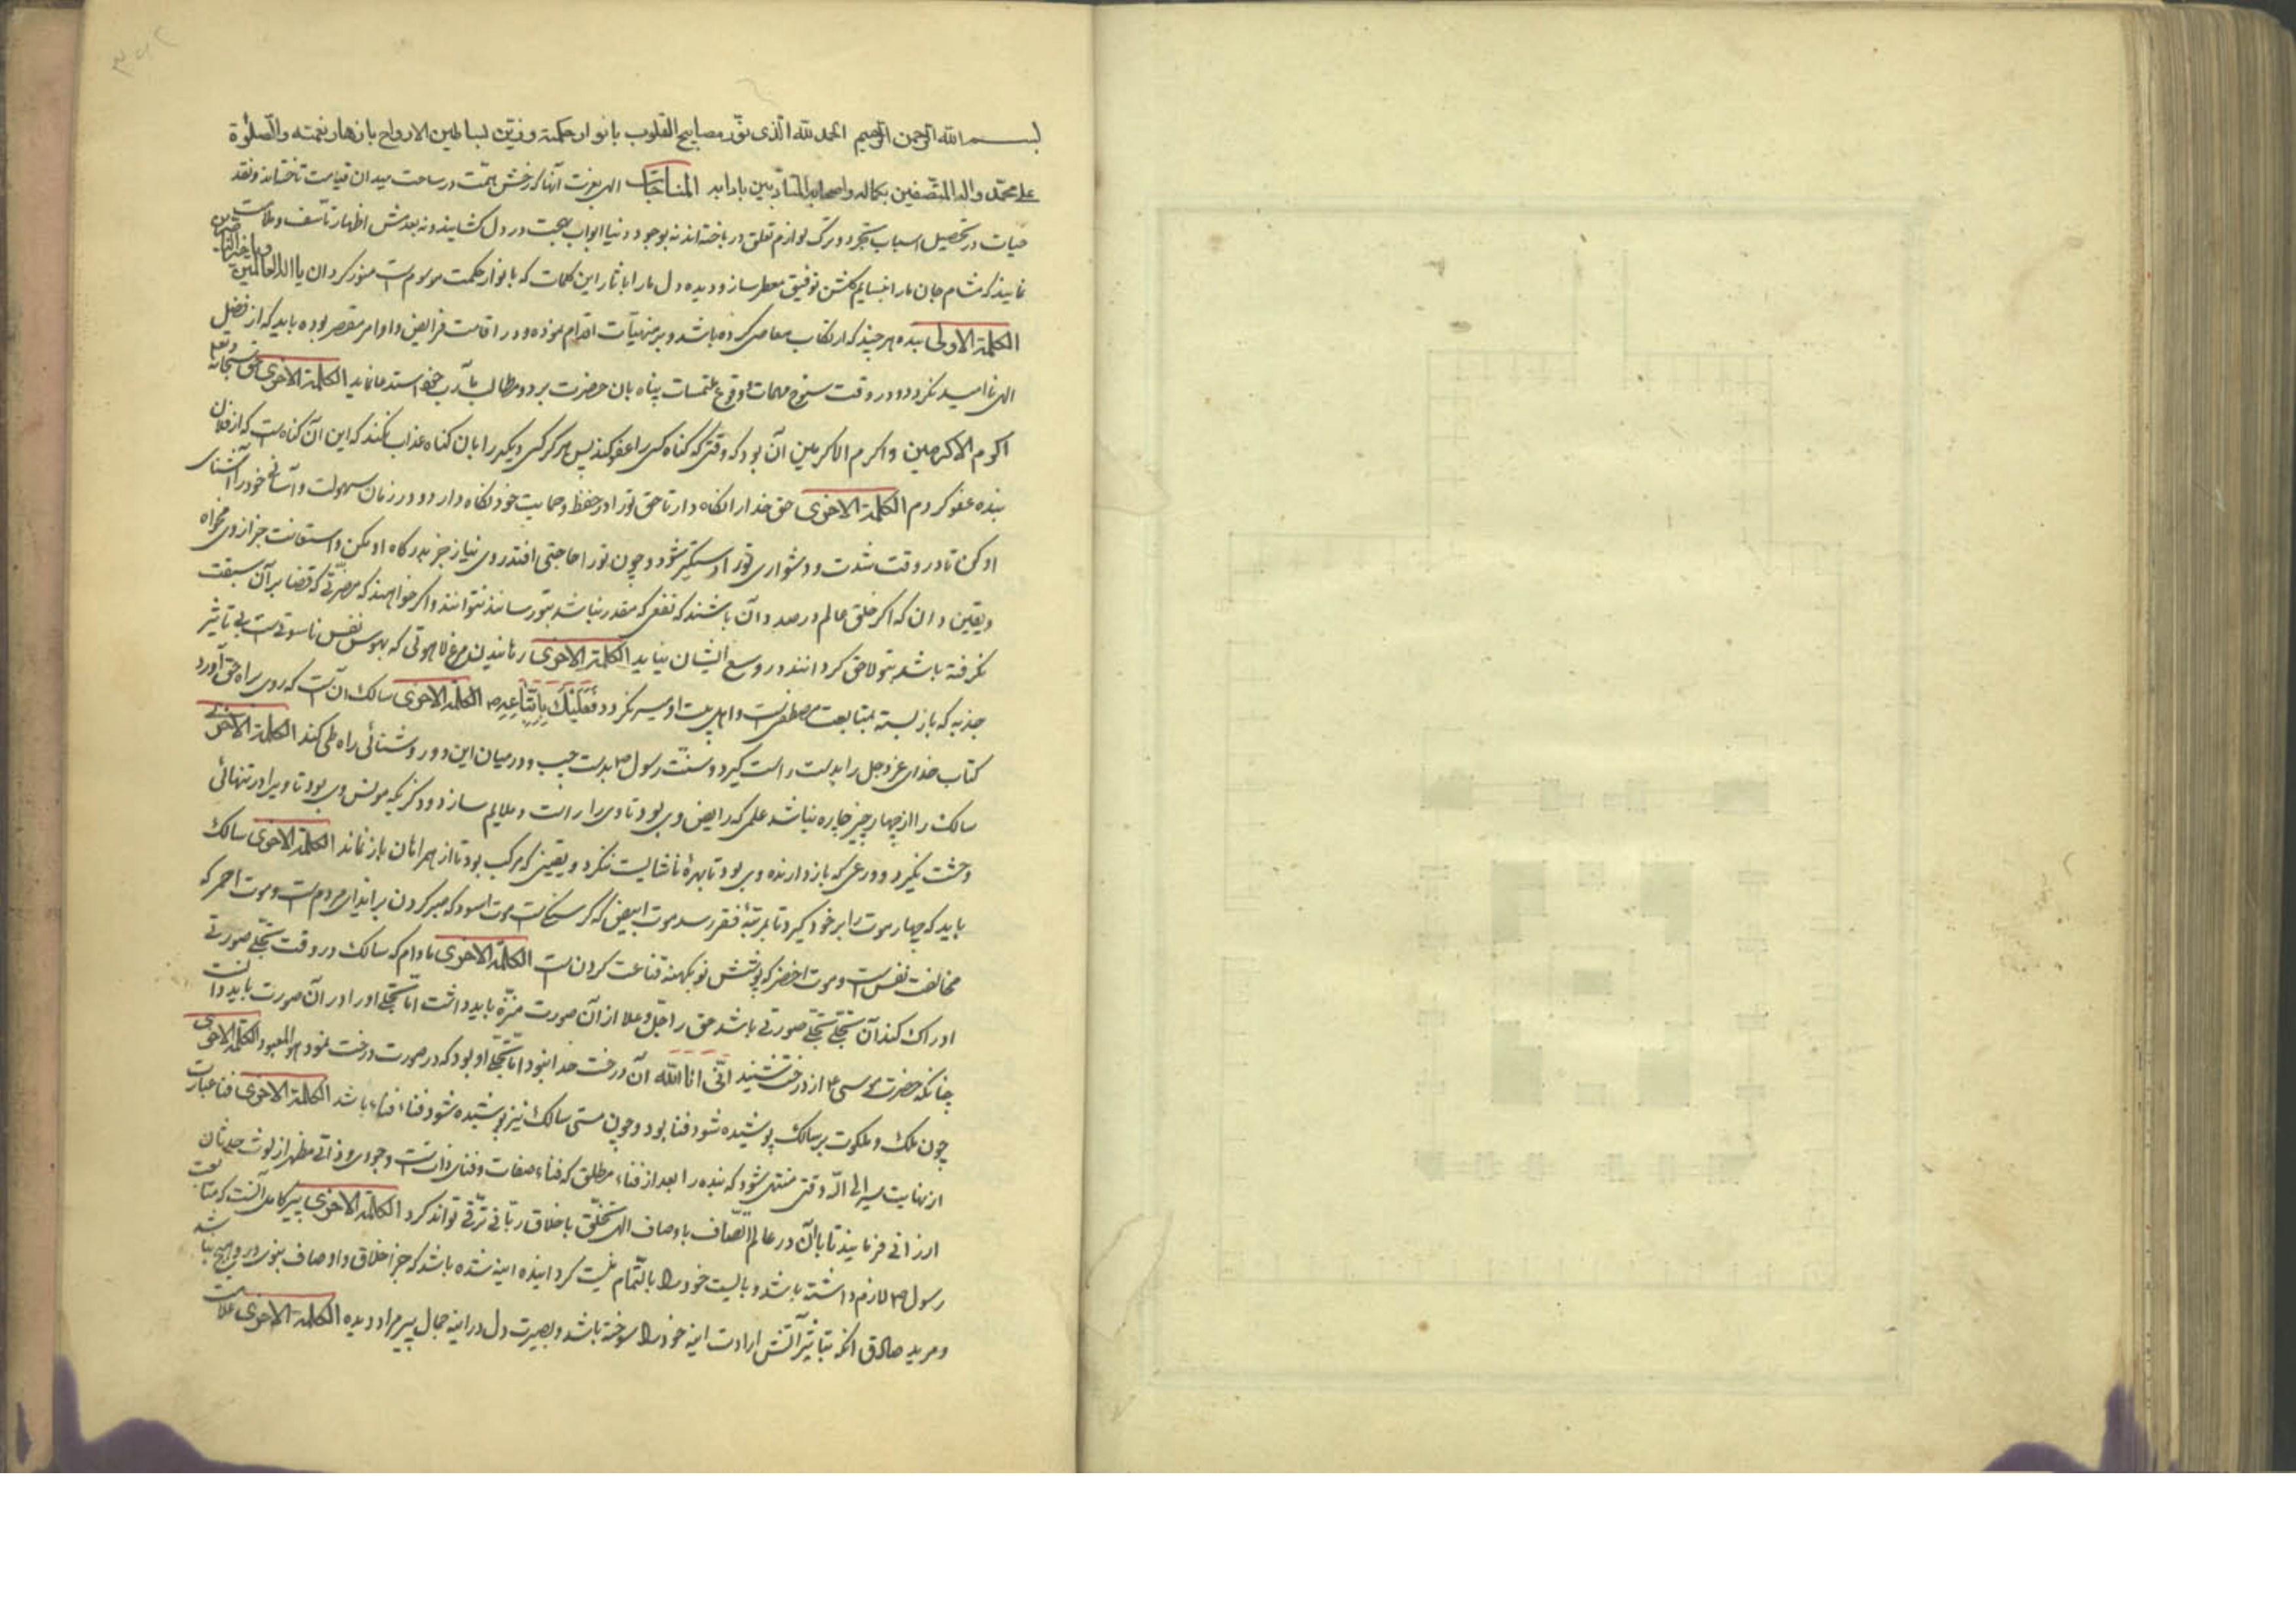 بسم الله الرحمن الرحیم الحمد لله الذی نور مصابیح القلوب بانوار حکمته وزین بساطین الارواح بازهار نعمته والصلوة
علی محمد واله المتصفین بکماله واصحابه المتادبین بادابه المناجات الهی بعزت آنها که رخش همت در ساحت میدان قیامت تاخته‌اند ونقد
حیات در تحصیل اسباب تجرد وترک لوازم تعلق درباخته‌اند نه بوجود دنیا ابواب بهجت در دل کشایند ونه بعدمش اظهار تأسف وملامت
نمایند که مشام جان ما را بنسایم کلشن توفیق معطر ساز ودیده دل ما را باثار این کلمات که بانوار حکمت موسوم است منور کردان یا اله العالمین ویا خیر الناصرین
الکلمة الاولی بنده هر چند که ارتکاب معاصی کرده باشد وبر منهیات اقدام نموده ودر اقامت فرایض واوامر مقصر بوده باید که از فضل
الهی ناامید نکردد ودر وقت سنوح مهمات ووقوع ملتمسات پناه بان حضرت برد ومطالب ومآرب خود استدعا نماید الکلمة الاخری حق سبحانه وتعالی
اکرم الاکرمین است واکرم الاکرمین آن بود که وقتی که کناه کسی را عفو کند پس هرکز کسی دیکر را بان کناه عذاب نکند که این آن کناه است که از فلان
بنده عفو کردم الکلمة الاخری حق خدا را نکاه دار تا حق تو را در حفظ وحمایت خود نکاه دارد ودر زمان سهولت وآسانی خود را آشنای
او کن تا در وقت شدت ودشواری تو را دستکیر شود وچون تو را حاجتی افتد روی نیاز جز بدرکاه او مکن واستعانت جز از وی مخواه
ویقین دان که اکر خلق عالم در صدد آن باشند که نفعی که مقدر نباشد بتو رسانند نتوانند واکر خواهند که مضرتی که قضا بر آن سبقت
نکرفته باشد بتو لاحق کردانند در وسع ایشان نیاید الکلمة الاخری رهانیدن مرغ لاهوتی که بهوس نفس ناسوتیست بی تاثیر
جذبه که باز بسته بمتابعت مصطفی است واهل بیت او میسر نکردد فعلیک باتباعه الکلمة الاخری سالک آن است که روی براه حق آورد
کتاب خدای عز وجل را بدست راست کیرد وسنت رسول ص بدست چپ ودر میان این دو روشنائی راه طی کند الکلمة الاخری
سالک را از چهار چیز چاره نباشد علمی که رایض وی بود تا وی را راست وملایم سازد وذکری که مونس وی بود تا ویرا در تنهائی
وحشت نکیرد وورعی که بازدارنده وی بود تا بهر ناشایست ننکرد ویقینی که مرکب بود تا از همراهان باز نماند الکلمة الاخری سالک
باید که چهار موت را بر خود کیرد تا بمرتبه فقر رسد موت ابیض که کرسنکی است موت اسود که صبر کردن بر ایذای مردم است وموت احمر که
مخالفت نفس است وموت اخضر که پوشش نو بکهنه قناعت کردن است الکلمة الاخری مادام که سالک در وقت تجلی صورتی
ادراک کند آن تجلی تجلی صورتی باشد حق را جل وعلا از آن صورت منزه باید داشت اما تجلی او را در آن صورت باید دانست
چنانکه حضرت موسی ع از درخت شنید انی انا الله آن درخت خدا نبود اما تجلی او بود که در صورت درخت نمود هو المعبود الکلمة الاخری
چون ملک وملکوت بر سالک پوشیده شود فنا بود وچون هستی سالک نیز پوشیده شود فناء فنا باشد الکلمة الاخری فنا عبارت
از نهایت سیر الی الله وقتی منتهی شود که بنده را بعد از فناء مطلق که فناء صفات وفنای ذات است وجودی وذاتی مطهر از لوث حدثان
ارزانی فرمایند تا بآن در عالم اتصاف باوصاف الهی وتخلق باخلاق ربانی ترقی تواند کرد الکلمة الاخری پیر کامل آنست که متابعت
رسول ص لازم داشته باشد وبایست خود را بالتمام نیست کردانیده آینه شده باشد که جز اخلاق واوصاف نبوی در وی هیچ نباشد
ومرید صادق آنکه بتاثیر آتش ارادت آینه خود را سوخته باشد وبصیرت دل در آینه جمال پیر مراد دیده الکلمة الاخری علامت